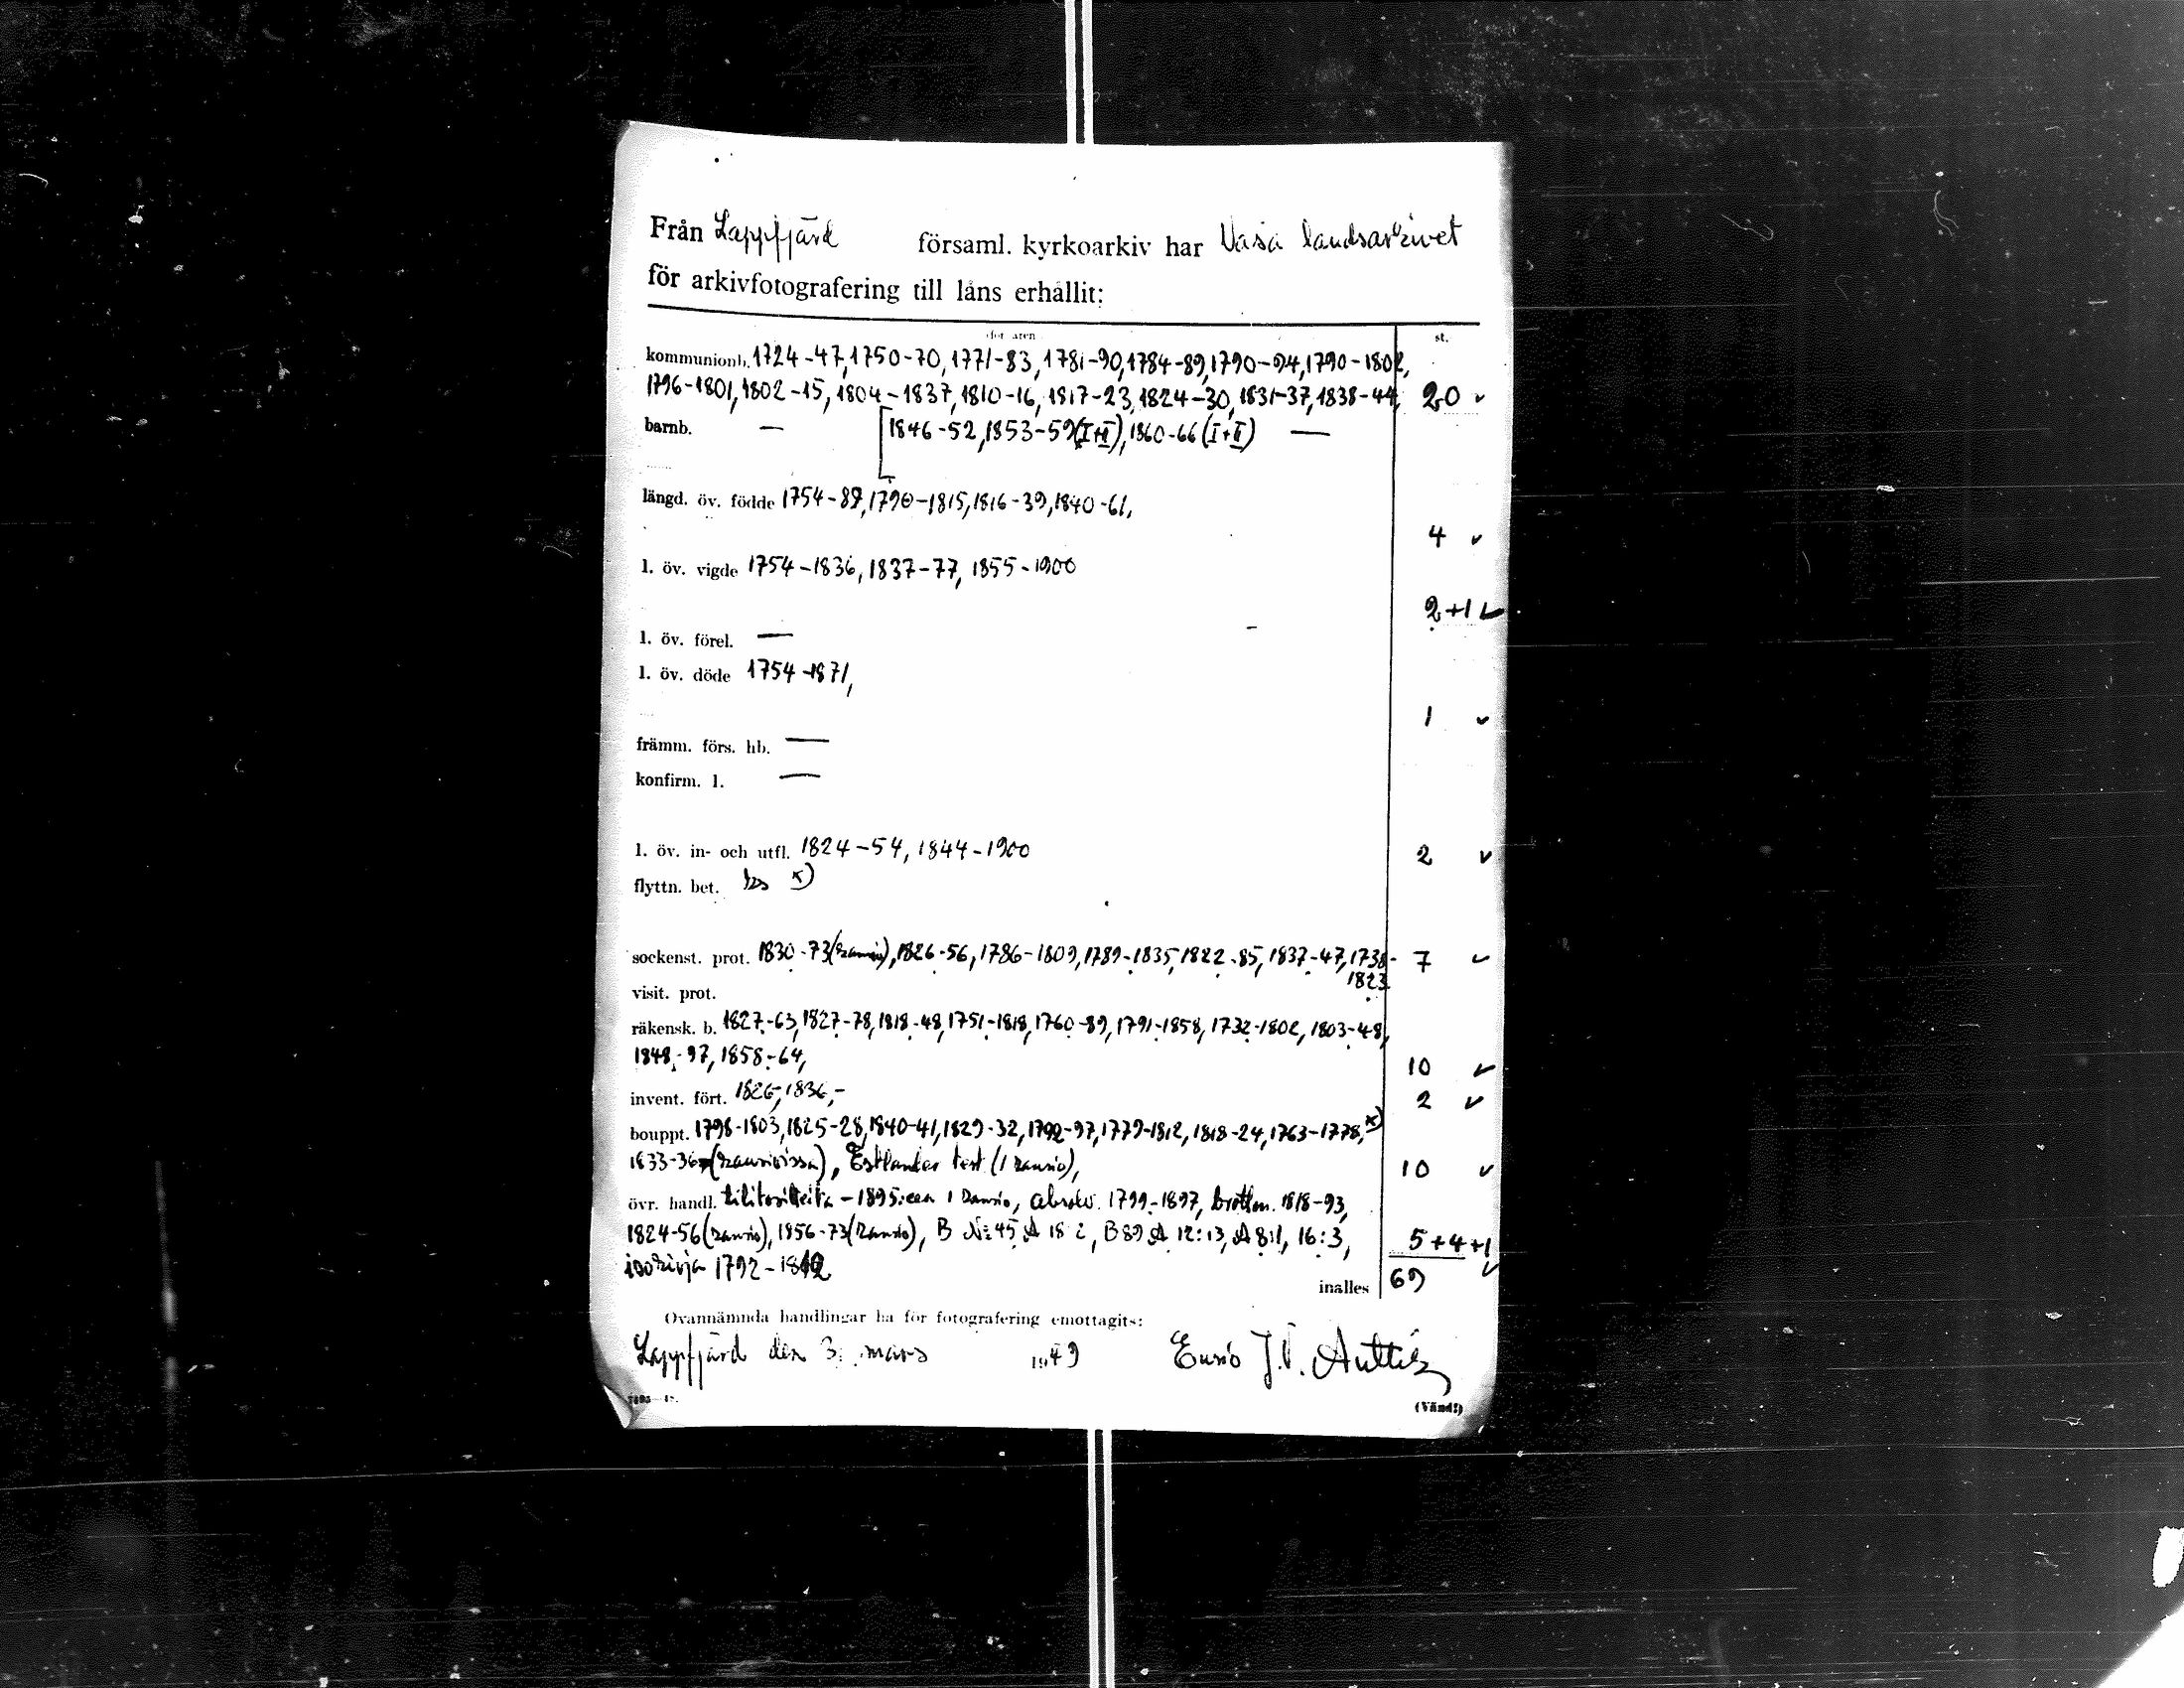 Från Lappfjärd församl. kyrkoarkiv har Vasa landsarkivet
för arkivfotografering till låns erhållit:
för åren st.
kommunionb. 1724-47, 1750-70, 1771-83, 1781-90, 1784-89, 1790-94, 1790-1802,
1796-1801, 1802-15, 1804-1837, 1810-16, 1817-23, 1824-30, 1831-37, 1838-44, 20 ✓
barnb. — [1846-52, 1853-59 (I+II), 1860-66 (I+II) —
längd. öv. födde 1754-89, 1790-1815, 1816-39, 1840-61,
4 ✓
l. öv. vigde 1754-1836, 1837-77, 1855-1900
2+1 ✓
l. öv. förel. —
l. öv. döde 1754-1871,
1 ✓
främm. förs. hb. —
konfirm. l. —
l. öv. in- och utfl. 1824-54, 1844-1900 2 ✓
flyttn. bet. x)
sockenst. prot. 1830-73, 1826-56, 1786-1809, 1789-1835, 1822-85, 1837-47, 1738- 7 ✓
1823
visit. prot.
räkensk. b. 1827-63, 1827-78, 1818-48, 1751-1818, 1760-89, 1791-1858, 1732-1802, 1803-48,
1848-97, 1858-64, 10 ✓
invent. fört. 1826-, 1836,- 2 ✓
bouppt. 1798-1803, 1825-28, 1840-41, 1829-32, 1792-97, 1779-1812, 1818-24, 1763-1778, x)
1833-36 10 ✓
övr. handl. -1895 1 1799-1897, 1818-93,
1824-56, 1856-73, B №45 A 18 2, B89 A 12:13, A 8:1, 16:3, 5+4+1
1792- ✓
inalles 69
Ovannämnda handlingar ha för fotografering emottagits:
Lappfjärd den 3. mars 1949
(Vänd!)